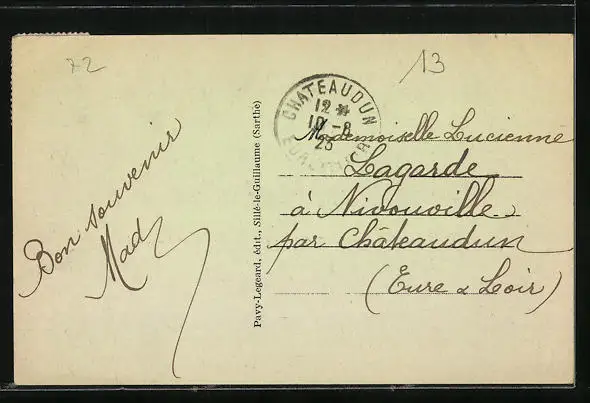 72
13
Bon souvenir
Mad
Pavy-Legeard, édit., Sillé-le-Guillaume (Sarthe)
CHATEAUDUN
12 *
10 -8
25
EURE
Mademoiselle Lucienne
Lagarde
à Nivouville
par Châteaudun
(Eure & Loir)